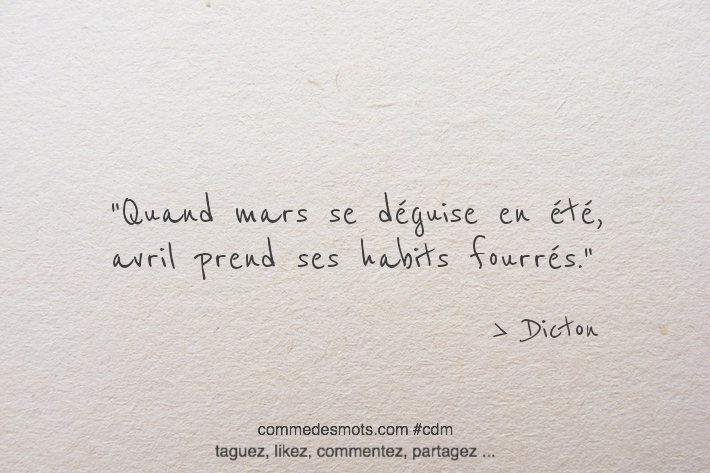 "Quand mars se déguise en été,
avril prend ses habits fourrés."
> Dicton
commedesmots.com #cdm
taguez, likez, commentez, partagez ...